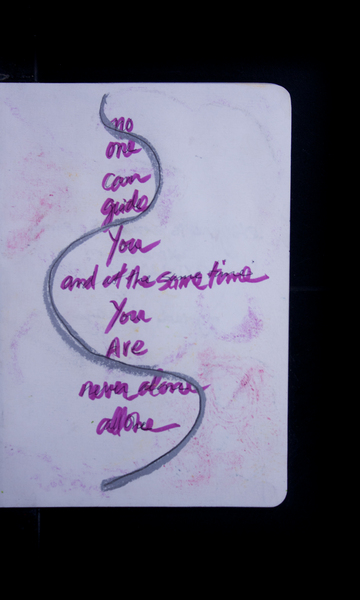 no
one
can
guide
You
and at the same time
You
Are
never alone
allone